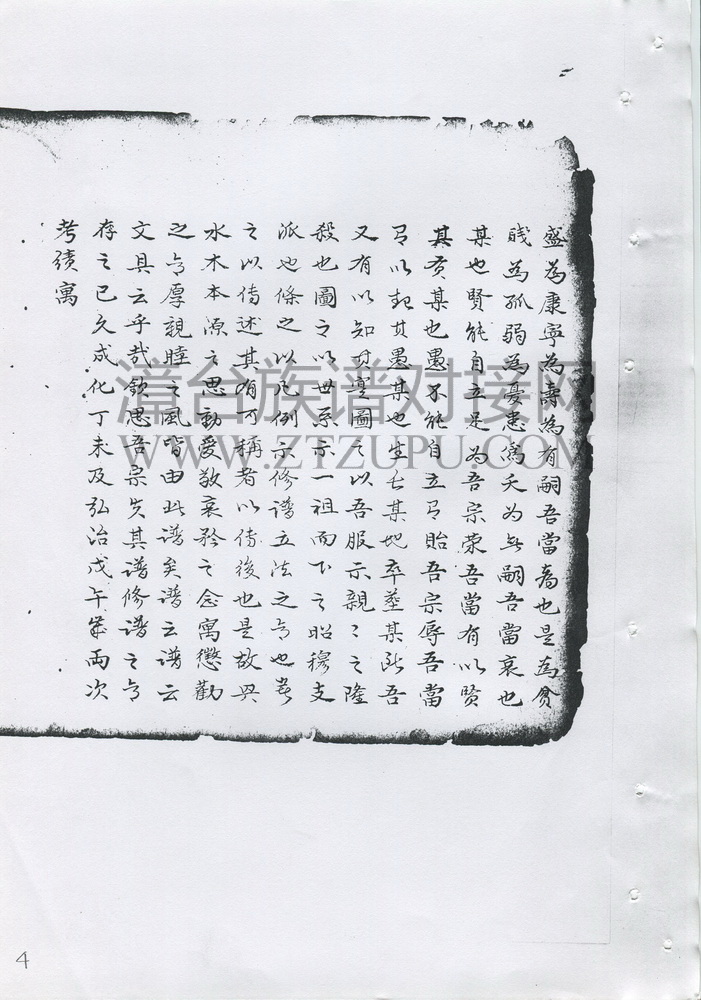 盛為康寧為壽為有嗣吾當喜也是為貧
賤為孤弱為憂患為夭為無嗣吾當哀也
某也賢能自立足為吾宗荣吾當有以賢
其賢某也愚不能自立有貽吾宗辱吾當
有以起其愚某也生长某地卒塟某所吾
又有以知
圖之以吾服示親之隆
殺也圖之以世系示一祖而下之昭穆支
派也條之以凡例示修譜立法之意也
之以傳述其有可稱者以傳後也是故興
水木本源之思動愛敬哀矜之念寓懲勸
之意厚親睦之風皆由此譜矣譜云譜云
文具云乎哉欽思吾宗失其譜修譜之意
存之已久成化丁未及弘治戊午嵗兩次
考績寓
漳台族谱对接网
WWW.ZTZUPU.COM
4